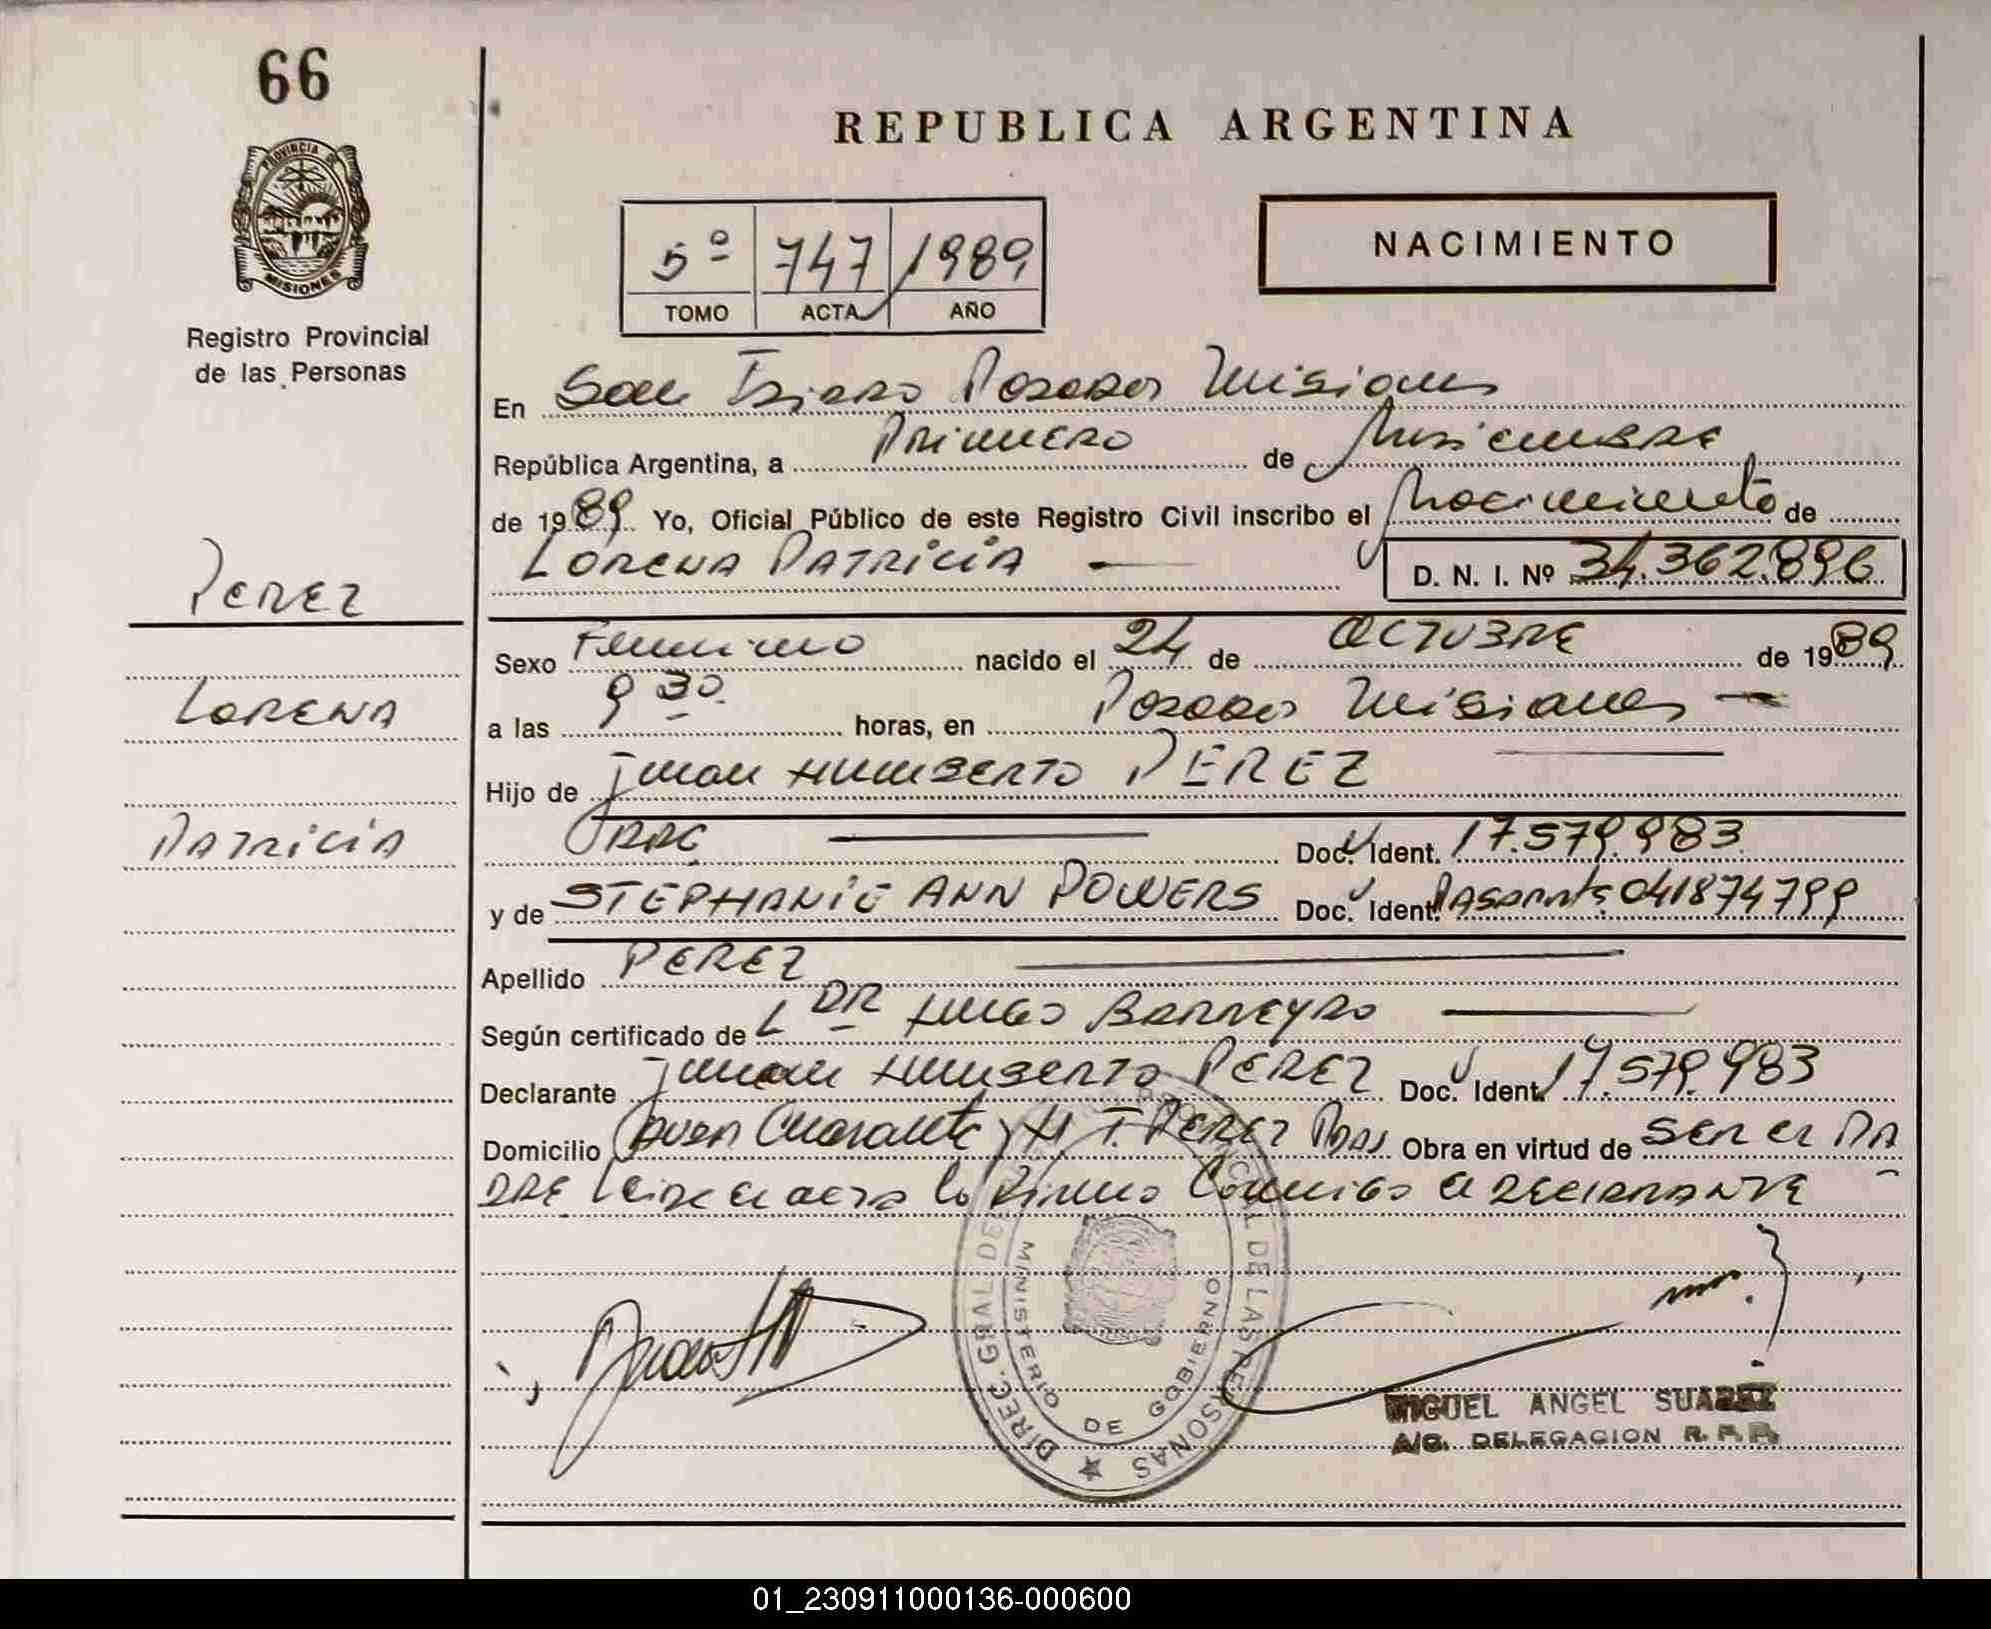 66
PROVINCIA DE
MISIONES
Registro Provincial
de las Personas
REPUBLICA ARGENTINA
5º 747 1989
TOMO ACTA AÑO
NACIMIENTO
En San Isidro Posadas Misiones
República Argentina, a Primero de Diciembre
de 1989 Yo, Oficial Público de este Registro Civil inscribo el Nacimiento de
LORENA PATRICIA — D. N. I. Nº 34.362.896
PEREZ
LORENA
PATRICIA
Sexo Femenino nacido el 24 de OCTUBRE de 1989
a las 9 30 horas, en Posadas Misiones —
Hijo de Juan Humberto PEREZ —
— Doc. Ident. 17.579.983
y de STEPHANIE ANN POWERS Doc. Ident. Pasaporte 041874799
Apellido PEREZ —
Según certificado de DR Hugo Barreyro —
Declarante Juan Humberto PEREZ Doc. Ident. 17.579.983
Domicilio Cuarenta y PEREZ Obra en virtud de SER EL PA
DRE Leida el acta la Firmo Conmigo el DECLARANTE
DIREC. GRAL DEL REGISTRO PROVINCIAL DE LAS PERSONAS
MINISTERIO DE GOBIERNO
MIGUEL ANGEL SUAREZ
A/C. DELEGACION R. P. P.
01_230911000136-000600